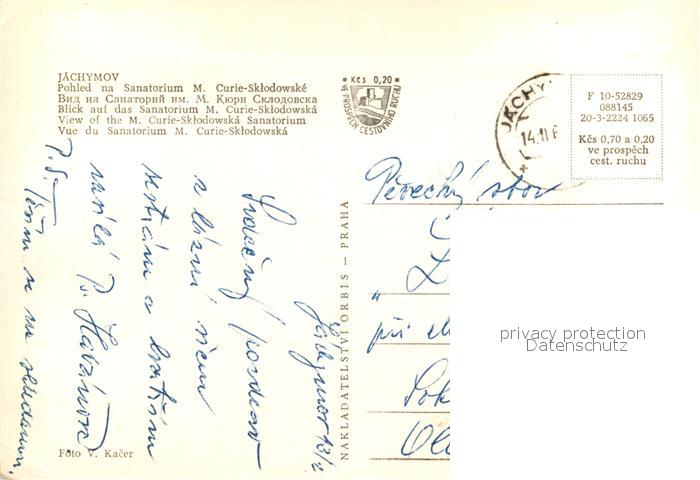 JÁCHYMOV
Pohled na Sanatorium M. Curie-Skłodowské
Вид на Санаторий им. М. Кюри Склодовска
Blick auf das Sanatorium M. Curie-Skłodowská
View of the M. Curie-Skłodowská Sanatorium
Vue du Sanatorium M. Curie-Skłodowská
Kčs 0,20
VE PROSPĚCH CESTOVNÍHO RUCHU
JÁCHY
14.II.6
F 10-52829
088145
20-3-2224 1065
Kčs 0,70 a 0,20
ve prospěch
cest. ruchu
Jáchymov 13/2
Srdečný pozdrav
z lázní všem
sestrám a bratřím
zasílá
P.S. Těším se na shledanou.
NAKLADATELSTVÍ ORBIS — PRAHA
Pěvecký sbor
při
Sok
Foto V. Kačer
privacy protection
Datenschutz